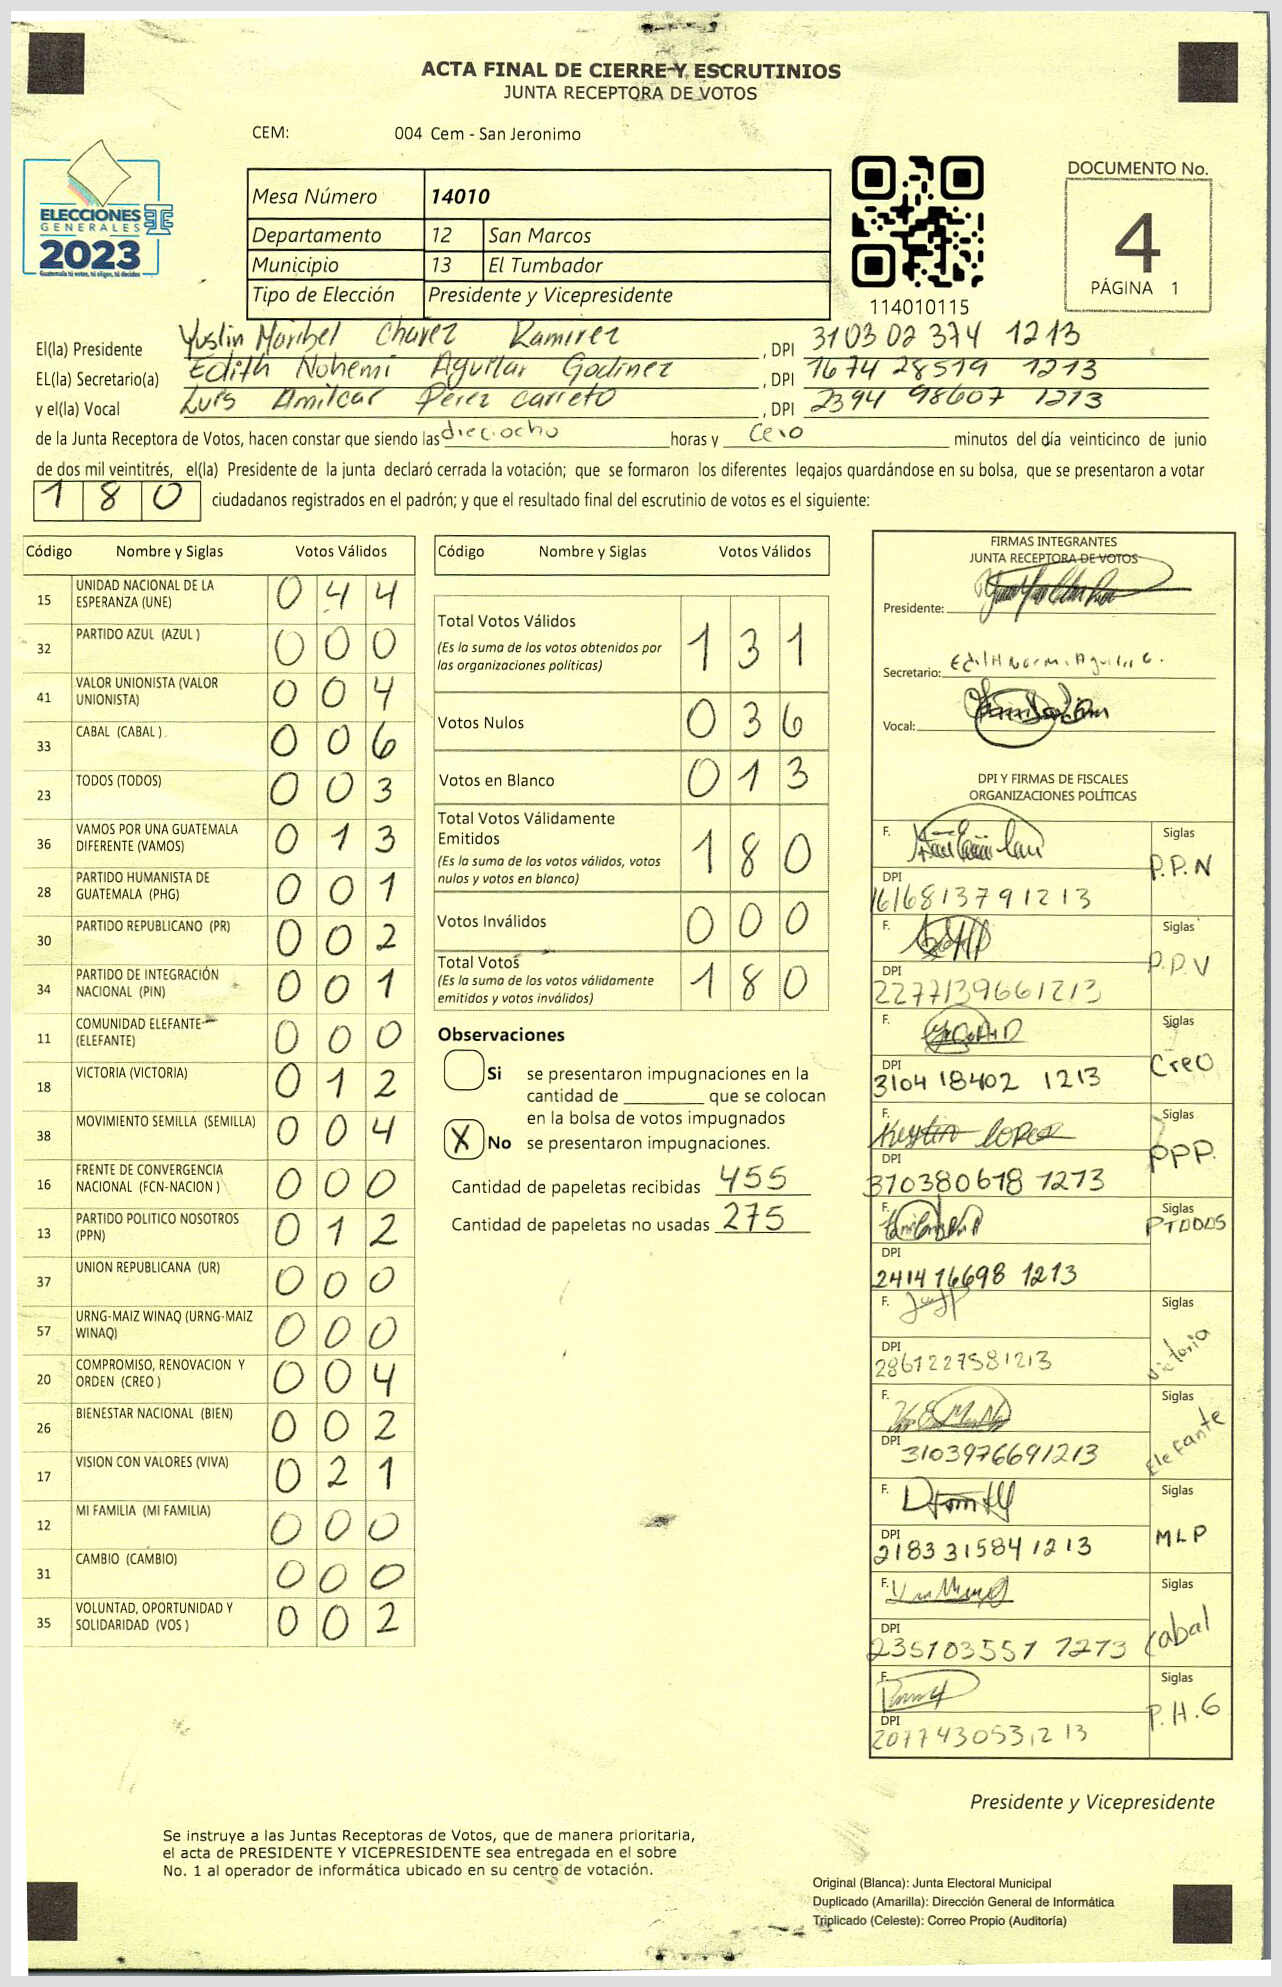 ACTA FINAL DE CIERRE Y ESCRUTINIOS
JUNTA RECEPTORA DE VOTOS
CEM: 004 Cem - San Jeronimo
ELECCIONES
GENERALES
2023
Guatemala tú votas, tú eliges, tú decides
Mesa Número 14010
Departamento 12 San Marcos
Municipio 13 El Tumbador
Tipo de Elección Presidente y Vicepresidente
114010115
DOCUMENTO No.
4
PÁGINA 1
El(la) Presidente Yuslin Maribel Chavez Ramirez , DPI 3103 02 374 1213
EL(la) Secretario(a) Edith Nohemi Aguilar Godinez , DPI 1674 28519 1213
y el(la) Vocal Luis Amilcar Pérez Carreto , DPI 2394 98607 1213
de la Junta Receptora de Votos, hacen constar que siendo las dieciocho horas y cero minutos del día veinticinco de junio
de dos mil veintitrés, el(la) Presidente de la junta declaró cerrada la votación; que se formaron los diferentes legajos quardándose en su bolsa, que se presentaron a votar
180 ciudadanos registrados en el padrón; y que el resultado final del escrutinio de votos es el siguiente:
Código Nombre y Siglas Votos Válidos
15 UNIDAD NACIONAL DE LA ESPERANZA (UNE) 044
32 PARTIDO AZUL (AZUL ) 000
41 VALOR UNIONISTA (VALOR UNIONISTA) 004
33 CABAL (CABAL ) 006
23 TODOS (TODOS) 003
36 VAMOS POR UNA GUATEMALA DIFERENTE (VAMOS) 013
28 PARTIDO HUMANISTA DE GUATEMALA (PHG) 001
30 PARTIDO REPUBLICANO (PR) 002
34 PARTIDO DE INTEGRACIÓN NACIONAL (PIN) 001
11 COMUNIDAD ELEFANTE (ELEFANTE) 000
18 VICTORIA (VICTORIA) 012
38 MOVIMIENTO SEMILLA (SEMILLA) 004
16 FRENTE DE CONVERGENCIA NACIONAL (FCN-NACION ) 000
13 PARTIDO POLITICO NOSOTROS (PPN) 012
37 UNION REPUBLICANA (UR) 000
57 URNG-MAIZ WINAQ (URNG-MAIZ WINAQ) 000
20 COMPROMISO, RENOVACION Y ORDEN (CREO ) 004
26 BIENESTAR NACIONAL (BIEN) 002
17 VISION CON VALORES (VIVA) 021
12 MI FAMILIA (MI FAMILIA) 000
31 CAMBIO (CAMBIO) 000
35 VOLUNTAD, OPORTUNIDAD Y SOLIDARIDAD (VOS ) 002
Código Nombre y Siglas Votos Válidos
Total Votos Válidos 131
(Es la suma de los votos obtenidos por
las organizaciones políticas)
Votos Nulos 036
Votos en Blanco 013
Total Votos Válidamente
Emitidos 180
(Es la suma de los votos válidos, votos
nulos y votos en blanco)
Votos Inválidos 000
Total Votos 180
(Es la suma de los votos válidamente
emitidos y votos inválidos)
Observaciones
Si se presentaron impugnaciones en la
cantidad de ________ que se colocan
en la bolsa de votos impugnados
X No se presentaron impugnaciones.
Cantidad de papeletas recibidas 455
Cantidad de papeletas no usadas 275
FIRMAS INTEGRANTES
JUNTA RECEPTORA DE VOTOS
Presidente:
Secretario:
Vocal:
DPI Y FIRMAS DE FISCALES
ORGANIZACIONES POLÍTICAS
F. Siglas P.P.N
DPI 1616813791213
F. Siglas P.P.V
DPI 2277139661213
F. Siglas Creo
DPI 3104 18402 1213
F. Siglas PPP.
DPI 310380618 1213
F. Siglas PTODOS
DPI 2414 16698 1213
F. Siglas Victoria
DPI 2861227581213
F. Siglas Elefante
DPI 3103976691213
F. Siglas MLP
DPI 2183 31584 1213
F. Siglas Cabal
DPI 235103551 1213
F. Siglas P.H.G
DPI 2077430531213
Presidente y Vicepresidente
Se instruye a las Juntas Receptoras de Votos, que de manera prioritaria,
el acta de PRESIDENTE Y VICEPRESIDENTE sea entregada en el sobre
No. 1 al operador de informática ubicado en su centro de votación.
Original (Blanca): Junta Electoral Municipal
Duplicado (Amarilla): Dirección General de Informática
Triplicado (Celeste): Correo Propio (Auditoría)